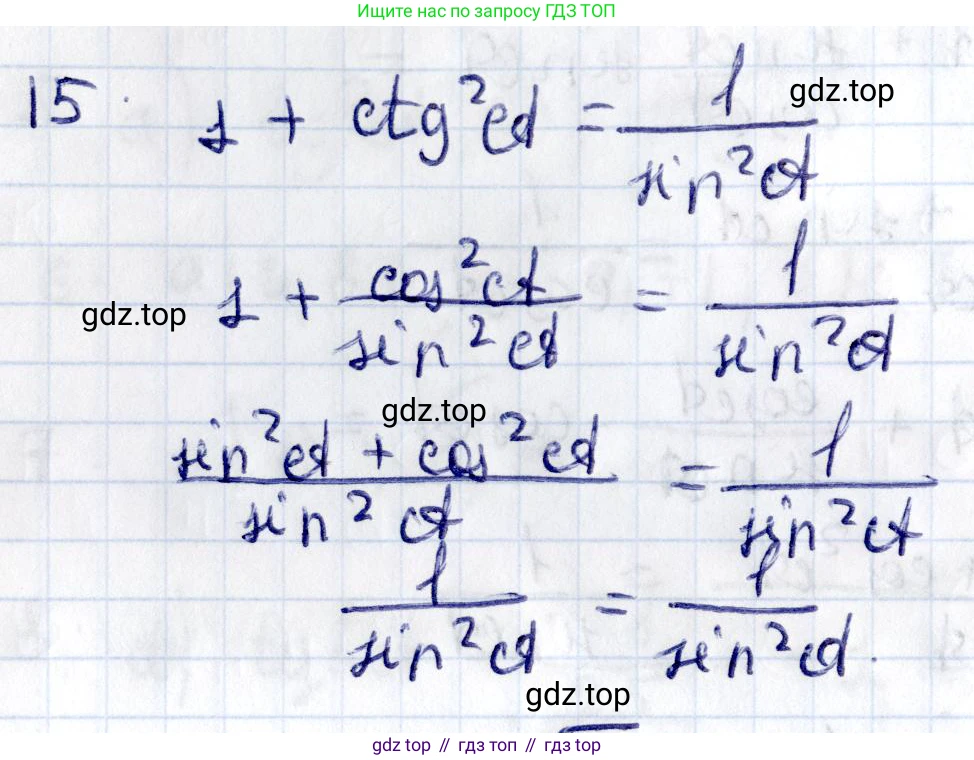 Ищите нас по запросу ГДЗ ТОП
15. 1 + ctg²α = 1/sin²α
gdz.top
1 + cos²α/sin²α = 1/sin²α
gdz.top
gdz.top
(sin²α + cos²α)/sin²α = 1/sin²α
1/sin²α = 1/sin²α.
gdz.top
gdz top // гдз топ // gdz top